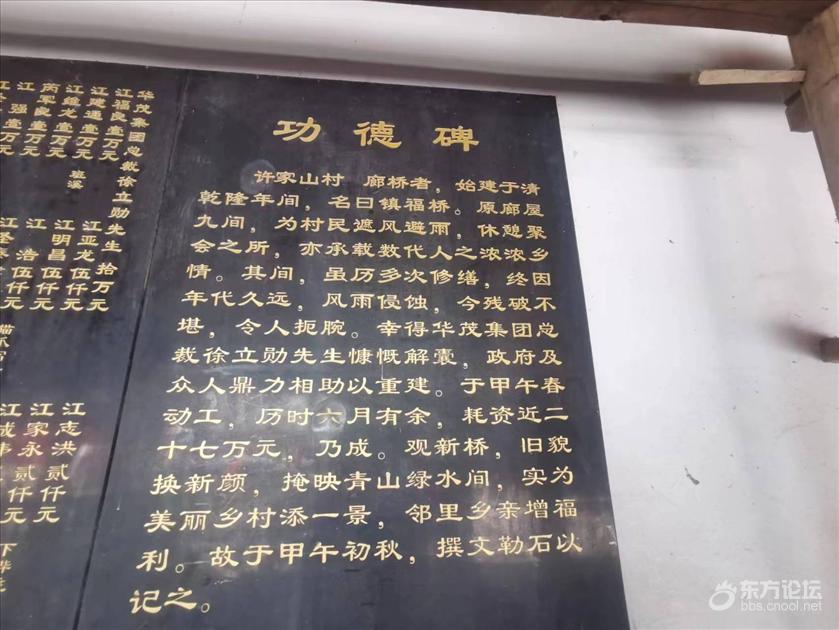 功德碑
许家山村 廊桥者，始建于清
乾隆年间，名曰镇福桥。原廊屋
九间，为村民遮风避雨，休憩聚
会之所，亦承载数代人之浓浓乡
情。其间，虽历多次修缮，终因
年代久远，风雨侵蚀，今残破不
堪，令人扼腕。幸得华茂集团总
裁徐立勋先生慷慨解囊，政府及
众人鼎力相助以重建。于甲午春
动工，历时六月有余，耗资近二
十七万元，乃成。观新桥，旧貌
换新颜，掩映青山绿水间，实为
美丽乡村添一景，邻里乡亲增福
利。故于甲午初秋，撰文勒石以
记之。
华茂集团总裁徐立勋先生拾万元
江福良壹万元
江建通壹万元
龙壹万元
班溪
军良壹万元
江强壹万元
江亚龙伍仟元
江明昌伍仟元
江浩伍仟元
伍仟元
江志洪贰仟元
江家永贰仟元
仟元
东方论坛
bbs.cnool.net